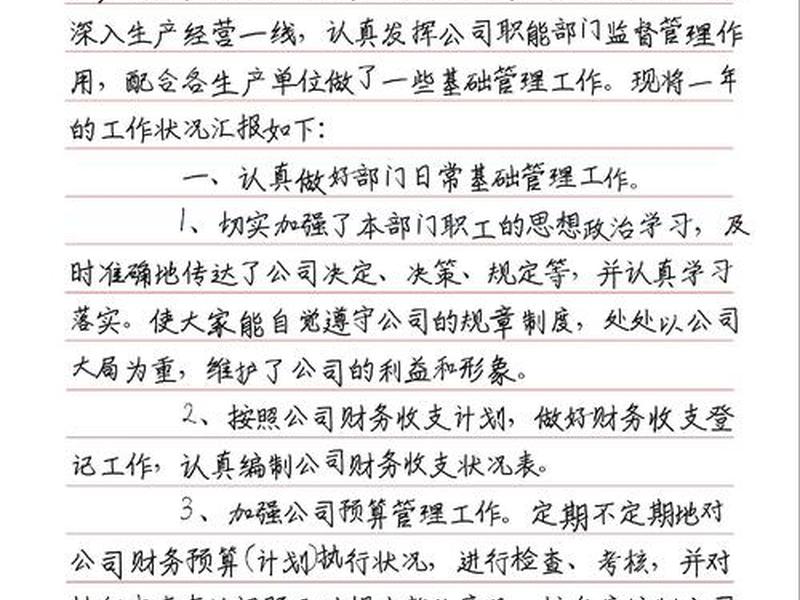 深入生产经营一线，认真发挥公司职能部门监督管理作
用，配合各生产单位做了一些基础管理工作。现将一年
的工作状况汇报如下：
一、认真做好部门日常基础管理工作。
1、切实加强了本部门职工的思想政治学习，及
时准确地传达了公司决定、决策、规定等，并认真学习
落实。使大家能自觉遵守公司的规章制度，处处以公司
大局为重，维护了公司的利益和形象。
2、按照公司财务收支计划，做好财务收支登
记工作，认真编制公司财务收支状况表。
3、加强公司预算管理工作。定期不定期地对
公司财务预算(计划)执行状况，进行检查、考核，并对